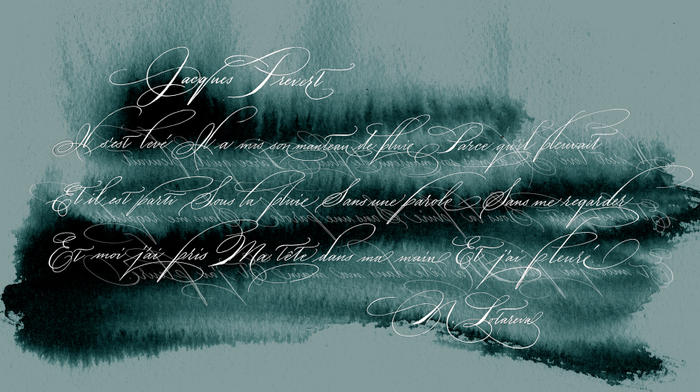 Jacques Prevert
Il s'est levé Il a mis son manteau de pluie Parce qu'il pleuvait
Et il est parti Sous la pluie Sans une parole Sans me regarder
Et moi j'ai pris Ma tête dans ma main Et j'ai pleuré
N Lotareva